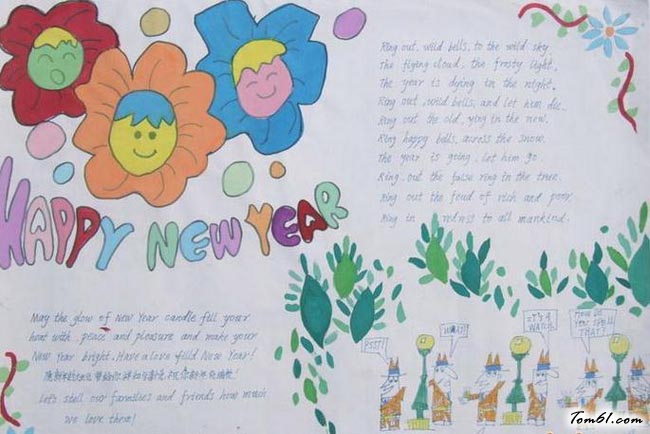 HAPPY NEW YEAR
May the glow of New Year candle fill your
heat with peace and pleasure and make your
New Year bright. Have a love filld New Year!
Let's stell our famelies and friends how much
we love them!
Ring out, wild bells, to the wild sky
The flying cload, the frosty light,
The year is dying in the night,
Ring out, wild bells, and let him die.
Ring out the old, ying in the new,
Ring happy bells, across the snow.
The year is going, let him go.
Ring out the false ring in the tree.
Ring out the feud of rich and poor,
Ring in redress to all mankind.
PSST!
WHAT?
IT'S A
WATCH
HOW DO
YOU SPELL
THAT?
Tom61.com